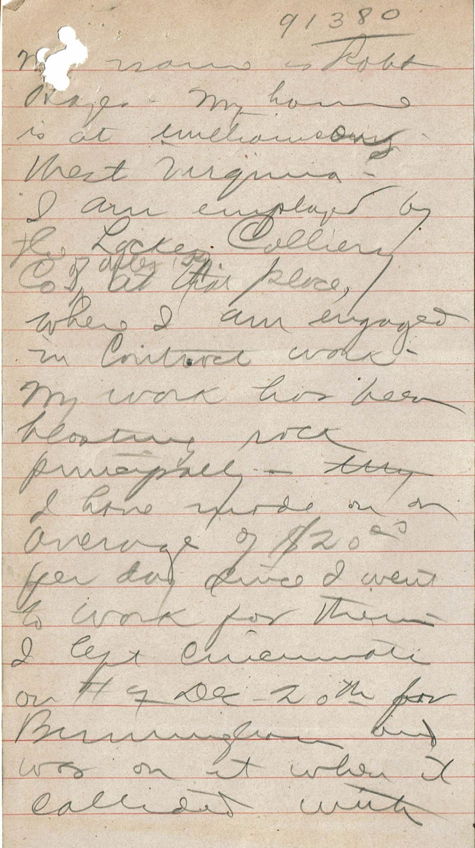 91380
My name is Robt
Hayes - My home
is at Williamson -
West Virginia -
I am employed by
the Colliery
Co of at that place,
where I am engaged
in Contract work -
My work has been
blasting rock
principally -
I have made on an
average of $20 00
per day since I went
to work for them -
I left Cincinnati
on # 9 Dec - 20th for
Birmingham and
was on it when it
collided with